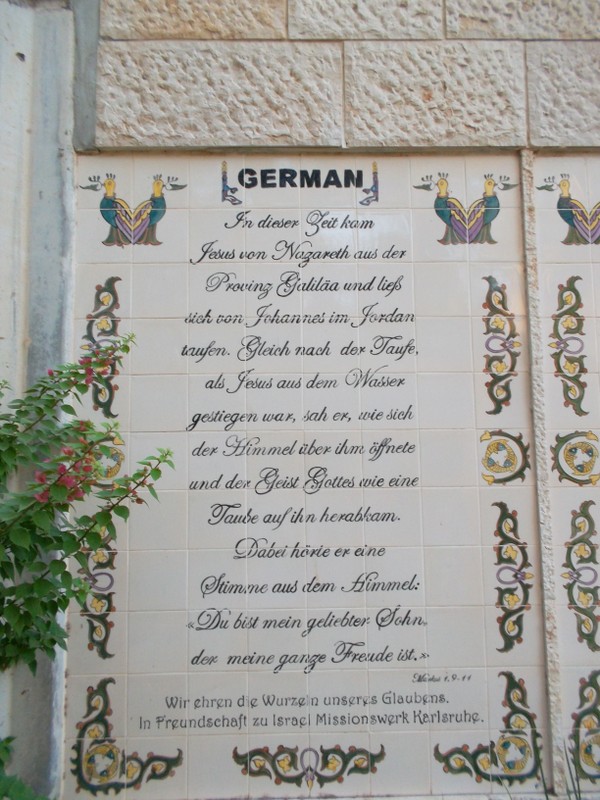 GERMAN
In dieser Zeit kam
Jesus von Nazareth aus der
Provinz Galiläa und ließ
sich von Johannes im Jordan
taufen. Gleich nach der Taufe,
als Jesus aus dem Wasser
gestiegen war, sah er, wie sich
der Himmel über ihm öffnete
und der Geist Gottes wie eine
Taube auf ihn herabkam.
Dabei hörte er eine
Stimme aus dem Himmel:
«Du bist mein geliebter Sohn,
der meine ganze Freude ist.»
Markus 1, 9-11
Wir ehren die Wurzeln unseres Glaubens.
In Freundschaft zu Israel Missionswerk Karlsruhe.